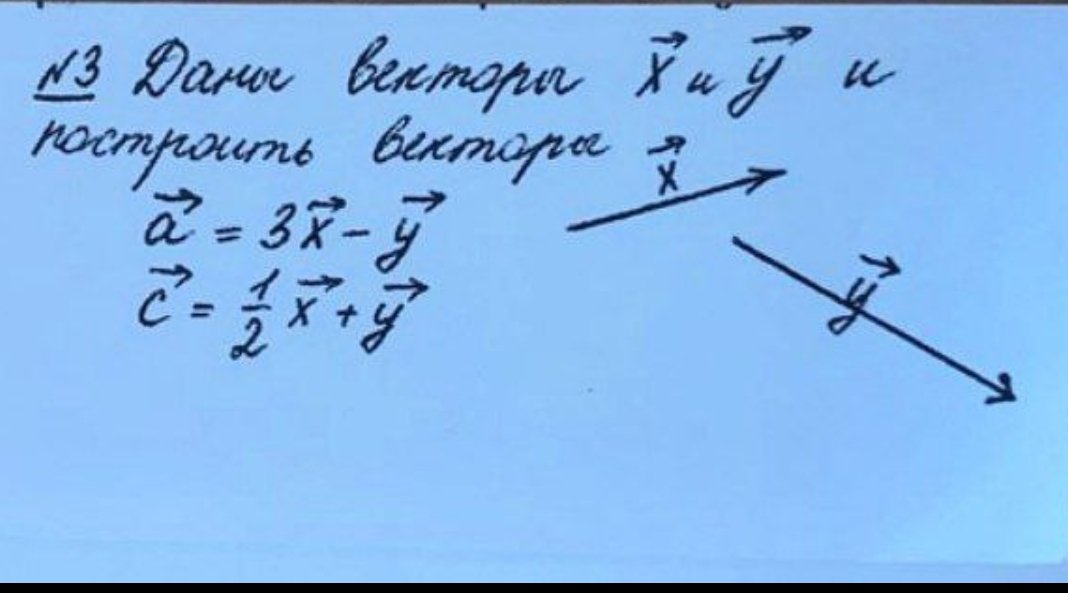 №3 Даны векторы x⃗ и y⃗ и
построить векторы
a⃗ = 3x⃗ - y⃗
c⃗ = 1/2 x⃗ + y⃗
x⃗
y⃗